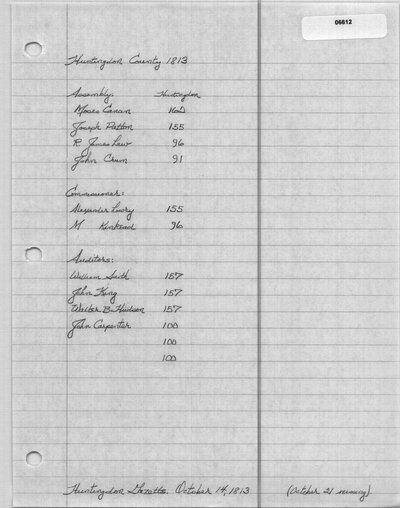 06612
Huntingdon County 1813
Assembly: Huntingdon
Moses Canan 160
Joseph Patton 155
R James Law 96
John Crum 91
Commissioner:
Alexander Lowry 155
M Kinkead 96
Auditors:
William Smith 157
John King 157
Walter B. Hudson 157
John Carpenter 100
100
100
Huntingdon Gazette. October 14, 1813 (October 21 missing).